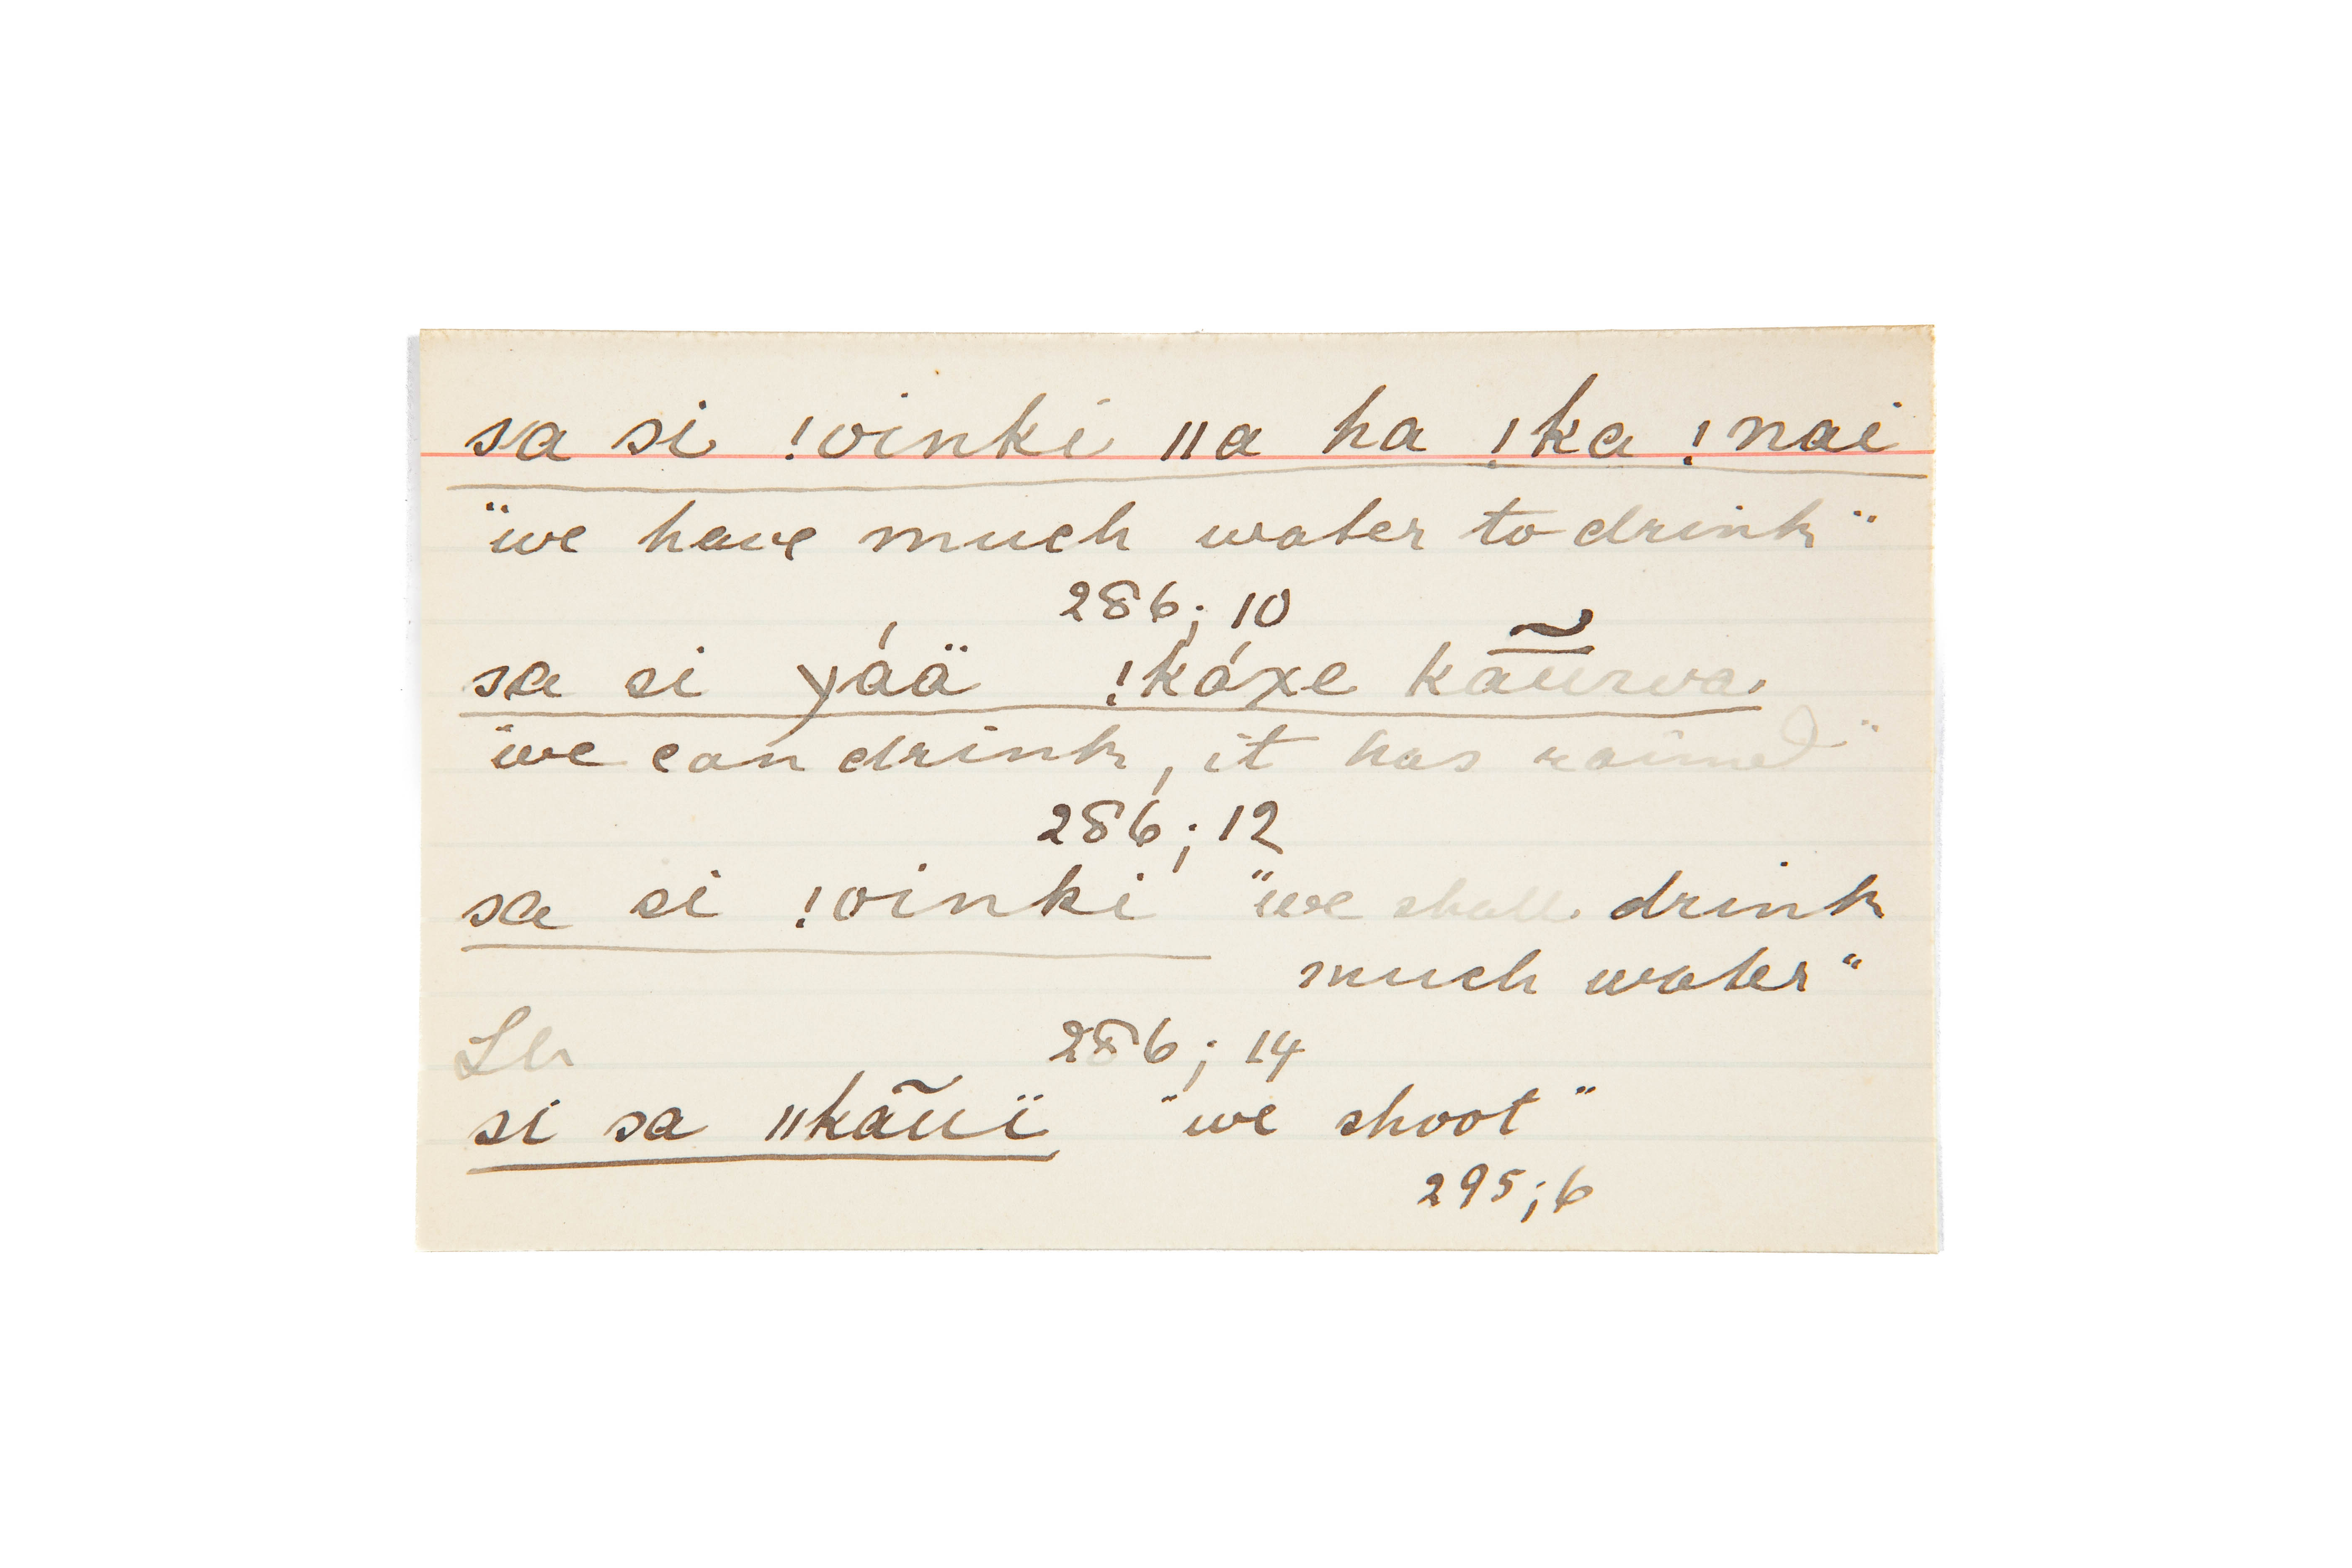 sa si !oinki ǁa ha !ka !nai
"we have much water to drink"
286; 10
sa si ýáä !káxe kā̃ūrwa
"we can drink, it has rained"
286; 12
sa si !oinki "we shall drink
much water"
286; 14
si sa ǁkãuï "we shoot"
295; 6